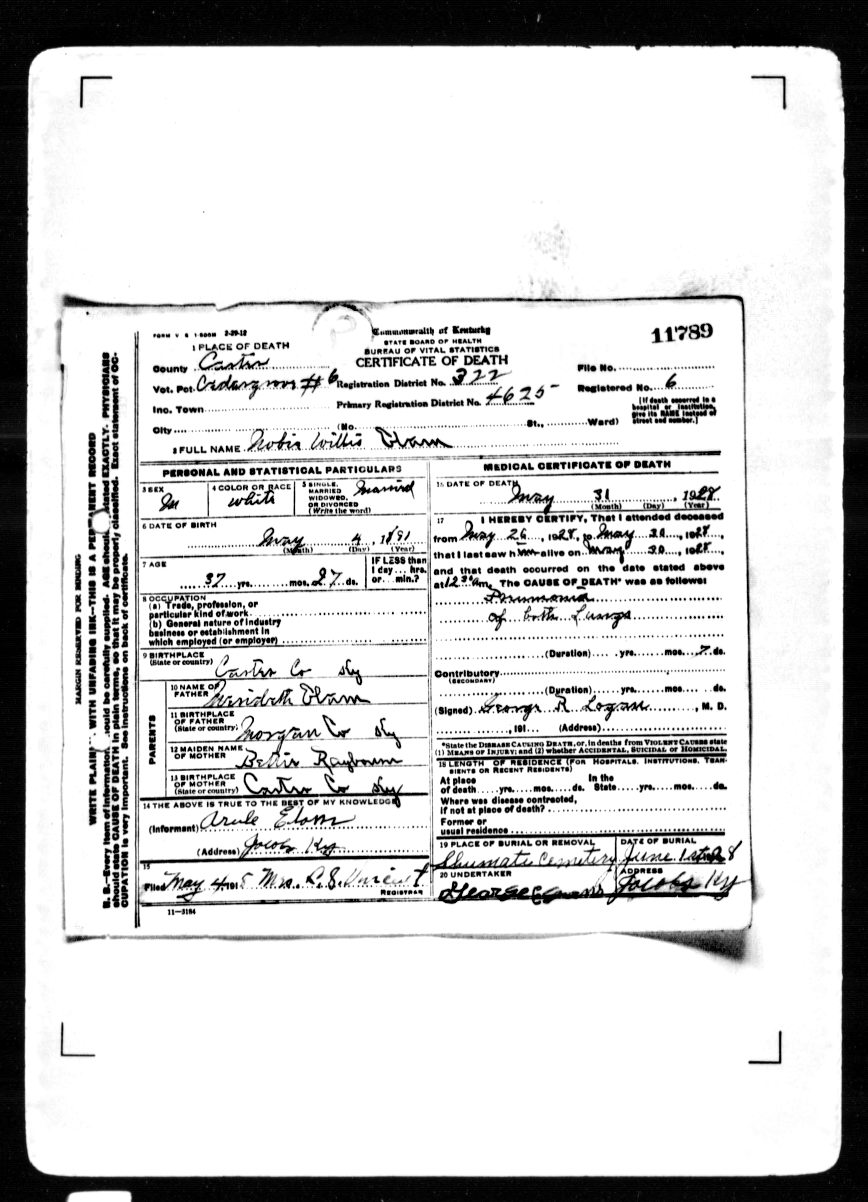 FORM V S 1-500M 2-29-12
Commonwealth of Kentucky
STATE BOARD OF HEALTH
BUREAU OF VITAL STATISTICS
CERTIFICATE OF DEATH
11789
1 PLACE OF DEATH
County Carter
Vot. Pct. Cedargrove #6 Registration District No. 322
Inc. Town Primary Registration District No. 4625
City (No. St., Ward)
File No.
Registered No. 6
[If death occurred in a hospital or institution, give its NAME instead of street and number.]
2 FULL NAME Nobie Willis Elam
PERSONAL AND STATISTICAL PARTICULARS
3 SEX M
4 COLOR OR RACE white
5 SINGLE, MARRIED WIDOWED, OR DIVORCED (Write the word) Married
6 DATE OF BIRTH
May 4, 1891
(Month) (Day) (Year)
7 AGE
37 yrs. mos. 27 ds.
IF LESS than 1 day... hrs. or... min.?
8 OCCUPATION
(a) Trade, profession, or particular kind of work
(b) General nature of industry business or establishment in which employed (or employer)
9 BIRTHPLACE (State or country) Carter Co Ky
PARENTS
10 NAME OF FATHER Elam
11 BIRTHPLACE OF FATHER (State or country) Morgan Co Ky
12 MAIDEN NAME OF MOTHER Bettie Raybourn
13 BIRTHPLACE OF MOTHER (State or country) Carter Co Ky
14 THE ABOVE IS TRUE TO THE BEST OF MY KNOWLEDGE
(Informant) Elam
(Address) Jacobs Ky
15
Filed May 4 191 Mrs.
REGISTRAR
11-3184
MEDICAL CERTIFICATE OF DEATH
16 DATE OF DEATH
May 31, 1928
(Month) (Day) (Year)
17 I HEREBY CERTIFY, That I attended deceased
from May 26, 1928, to May 30, 1928,
that I last saw him alive on May 30, 1928,
and that death occurred on the date stated above
at 12 30 m. The CAUSE OF DEATH* was as follows:
Pneumonia
of both Lungs
(Duration) yrs. mos. 7 ds.
Contributory
(SECONDARY)
(Duration) yrs. mos. ds.
(Signed) George R Logan, M. D.
, 191 (Address)
*State the DISEASE CAUSING DEATH, or, in deaths from VIOLENT CAUSES state
(1) MEANS OF INJURY; and (2) whether ACCIDENTAL, SUICIDAL or HOMICIDAL.
18 LENGTH OF RESIDENCE (FOR HOSPITALS, INSTITUTIONS, TRANSIENTS OR RECENT RESIDENTS)
At place of death yrs. mos. ds. In the State yrs. mos. ds.
Where was disease contracted,
if not at place of death?
Former or
usual residence
19 PLACE OF BURIAL OR REMOVAL
Shumate Cemetery
DATE OF BURIAL
June 1st 28
20 UNDERTAKER
George
ADDRESS
Jacobs Ky
MARGIN RESERVED FOR BINDING
WRITE PLAINLY WITH UNFADING INK--THIS IS A PERMANENT RECORD
N. B.--Every item of information should be carefully supplied. AGE should be stated EXACTLY. PHYSICIANS
should state CAUSE OF DEATH in plain terms, so that it may be properly classified. Exact statement of OC-
CUPATION is very important. See instructions on back of certificate.